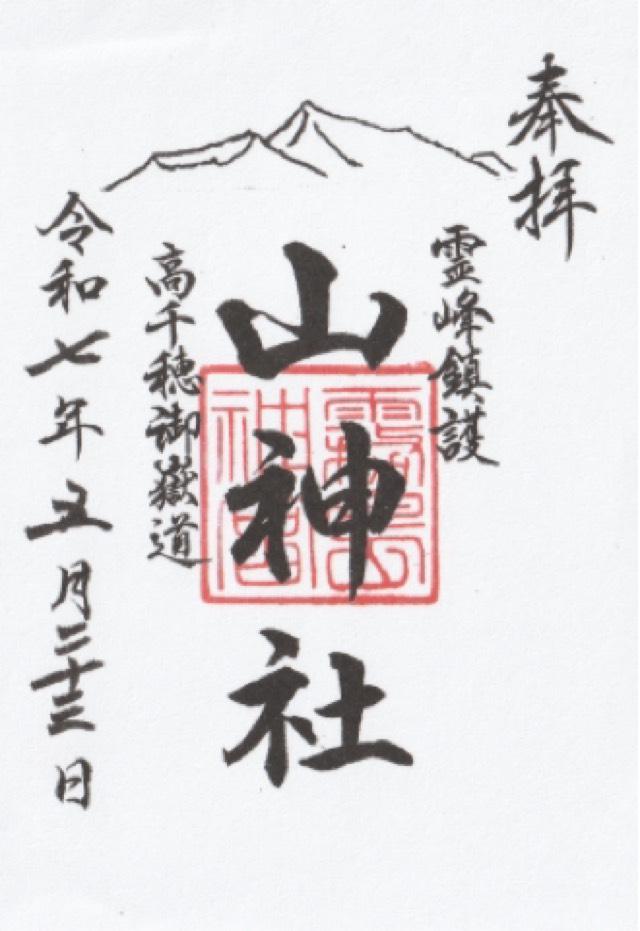 奉拝
霊峰鎮護
山神社
高千穂御嶽道
令和七年五月二十三日